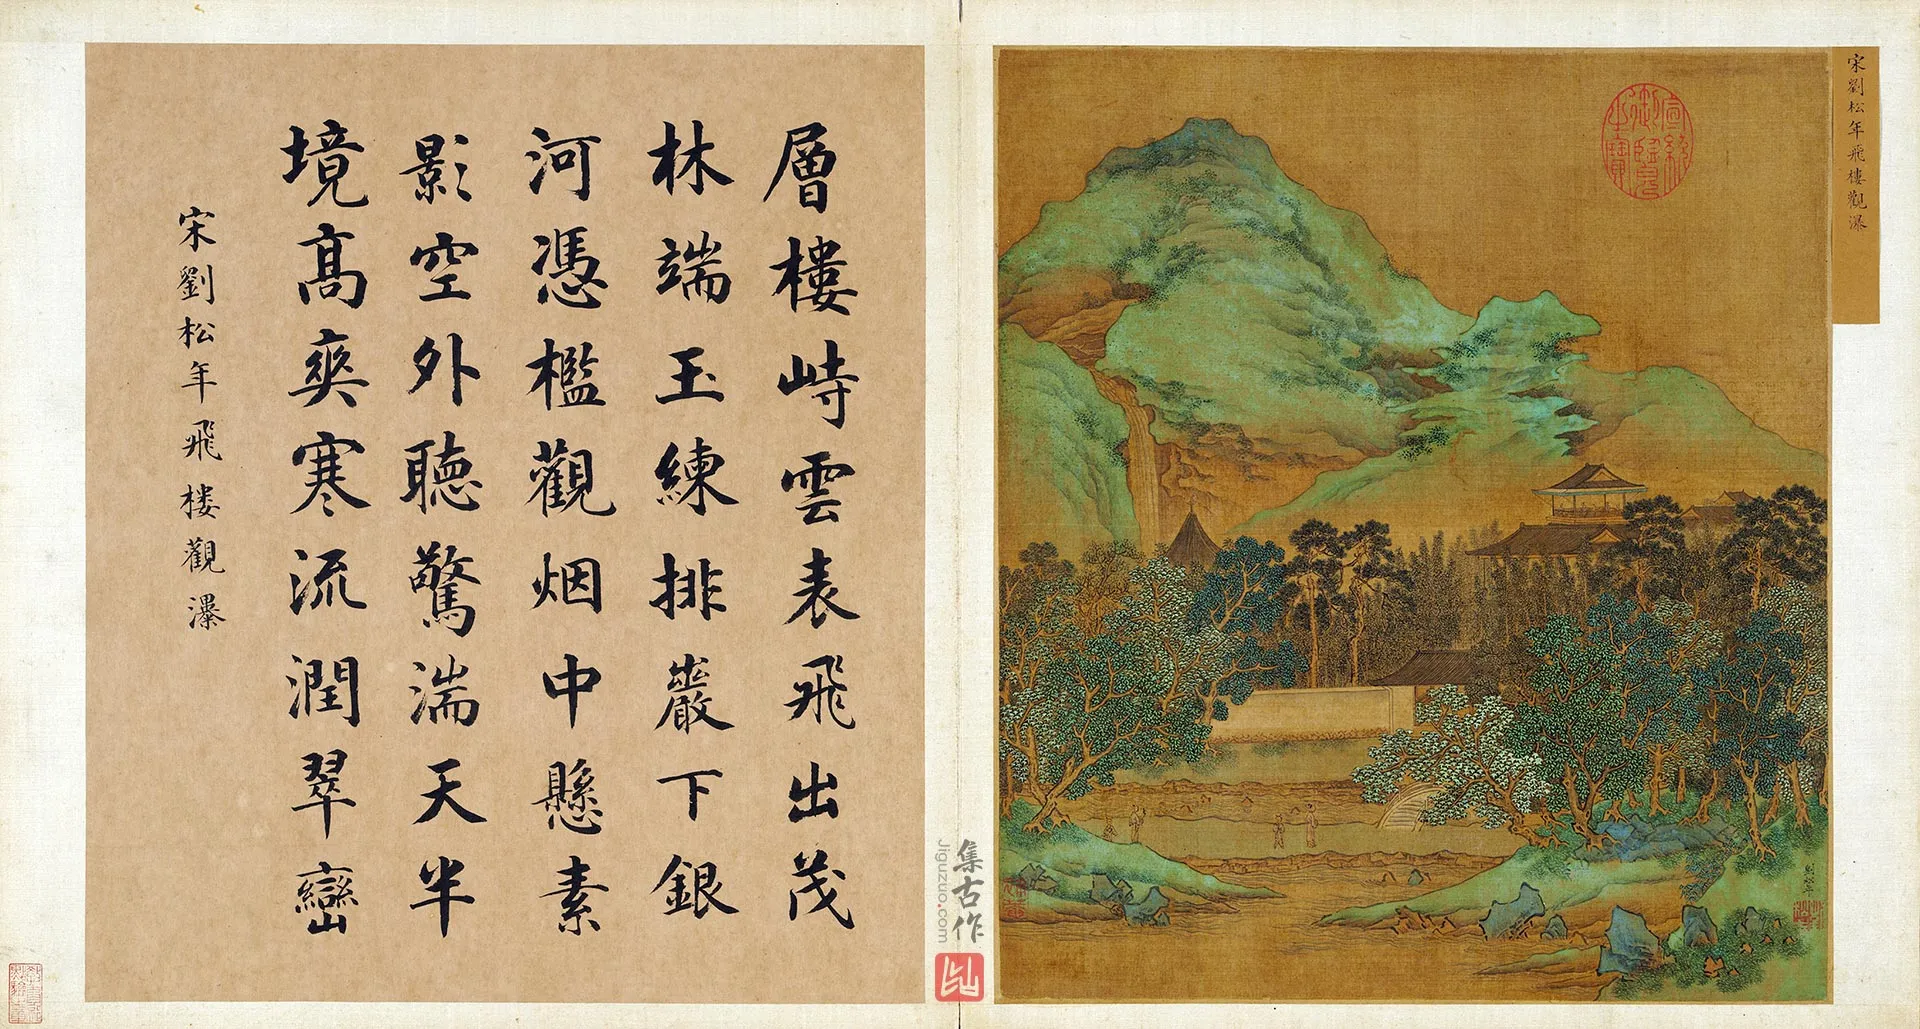 宋劉松年飛樓觀瀑
宣統御覽之寶
劉松年
層樓峙雲表飛出茂
林端玉練排巖下銀
河憑檻觀烟中懸素
影空外聽驚湍天半
境高爽寒流潤翠巒
宋劉松年飛樓觀瀑
集古作
Jiguzuo.com